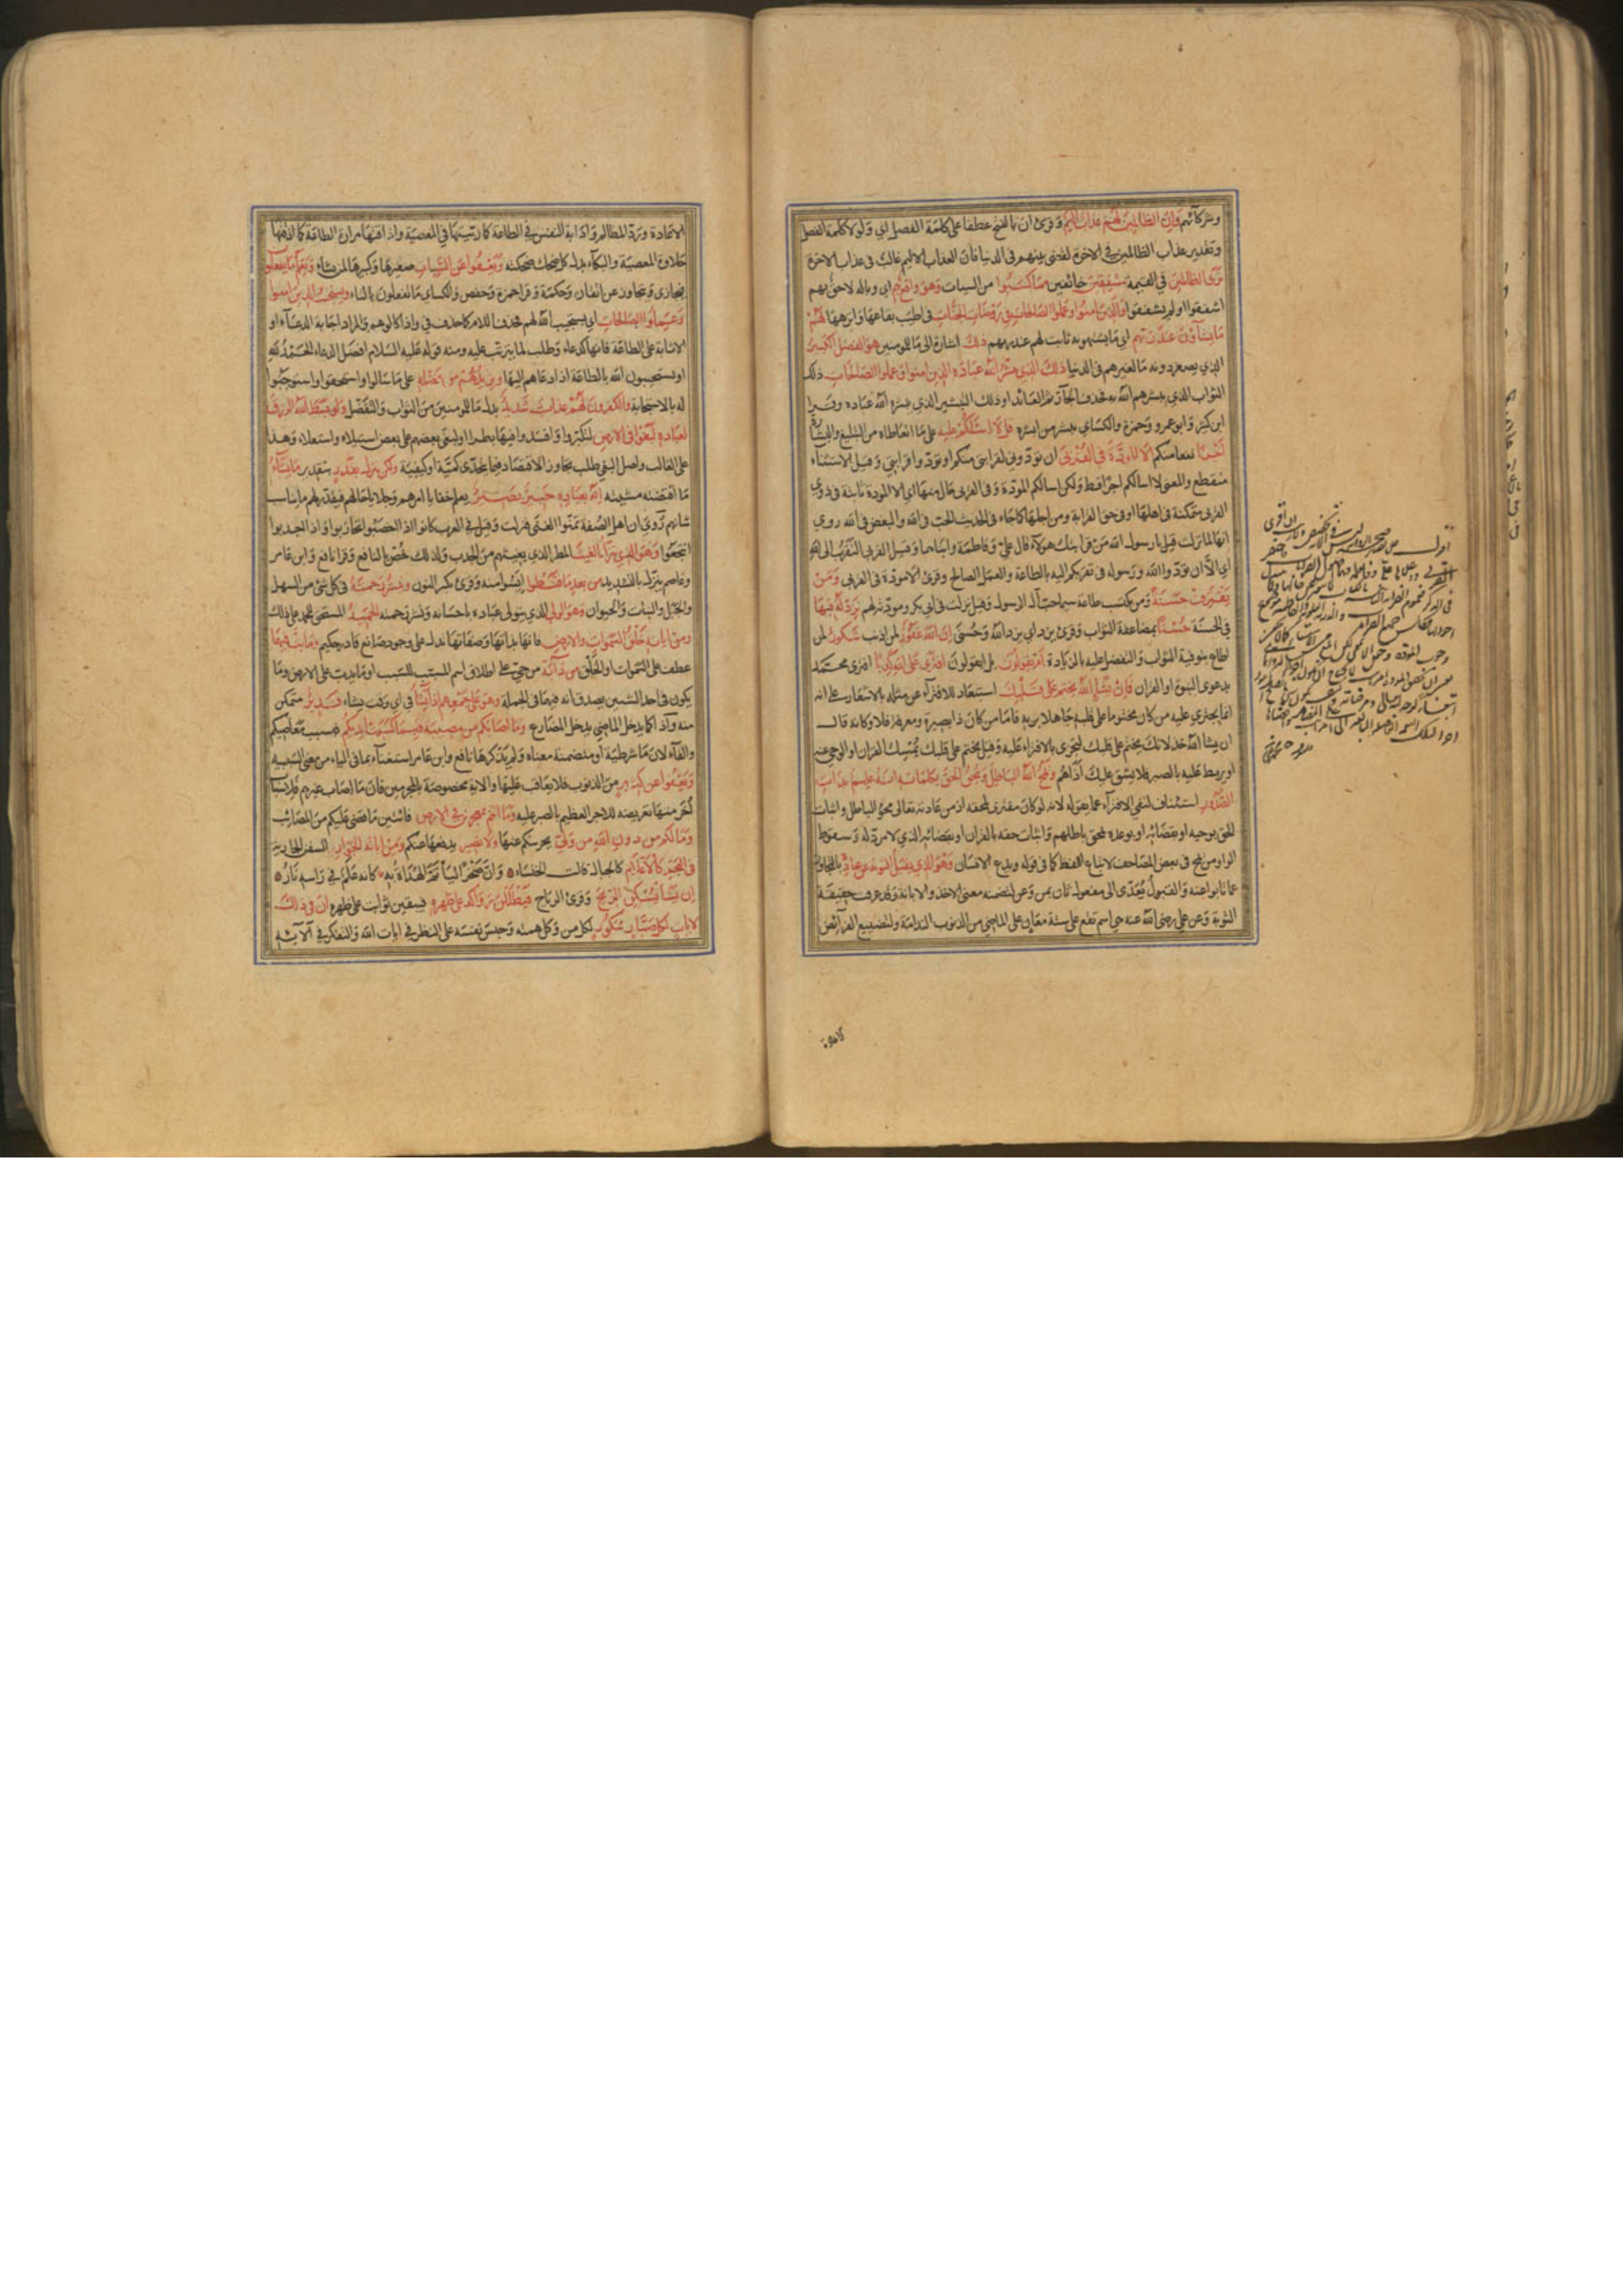 وشركآئهم وَاِنَّ الظَّالِمِينَ لَهُمْ عَذَابٌ اَلِيمٌ وقرئ ان بالفتح عطفا على كلمة الفصل اي ولولا كلمة الفصل
وتقدير عذاب الظالمين في الاخرة لقضى بينهم فى الدنيا فان العذاب الاليم غالب فى عذاب الاخرة
تَرَى الظَّالِمِينَ في القيمة مُشْفِقِينَ خائفين مِمَّا كَسَبُوا من السيات وَهُوَ وَاقِعٌ بِهِمْ اي وباله لاحق بهم
اشفقوا او لم يشفقوا وَالَّذِينَ اٰمَنُوا وَعَمِلُوا الصَّالِحَاتِ فِي رَوْضَاتِ الْجَنَّاتِ فى اطيب بقاعها وانزهها لَهُمْ
مَا يَشَآؤُنَ عِنْدَ رَبِّهِمْ اي ما يشتهونه ثابت لهم عند ربهم ذٰلِكَ اشارة الى ما للمومنين هُوَ الْفَضْلُ الْكَبِيرُ
الذي يصغر دونه ما لغيرهم فى الدنيا ذٰلِكَ الَّذِي يُبَشِّرُ اللّٰهُ عِبَادَهُ الَّذِينَ اٰمَنُوا وَعَمِلُوا الصَّالِحَاتِ ذلك
الثواب الذي يبشرهم الله به فحذف الجار ثم العائد او ذلك التبشير الذي يبشره الله عباده وقــرا
ابن كثير وابو عمرو وحمزة والكسائي يبشر من ابشره قُلْ لَا اَسْئَلُكُمْ عَلَيْهِ على ما اتعاطاه من التبليغ والبشارة
اَجْرًا نفعا منكم اِلَّا الْمَوَدَّةَ فِي الْقُرْبٰى ان تودّوني لقرابتى منكم او تودّوا قرابتي وقيل الاستثناء
منقطع والمعنى لا اسالكم اجرا قط ولكن اسالكم المودّة وفى القربى حال منها اي الا المودة ثابتة فى ذوي
القربى متمكنة فى اهلها او فى حق القرابة ومن اجلها كما جاء فى الحديث الحبّ فى الله والبغض فى الله روي
انها لما نزلت قيل يا رسول الله من قرابتك هؤلاء قال عليّ وفاطمة وابناهما وقيل القربى التقرّب الى الله
اي الّا ان تودّوا الله ورسوله فى تقربكم اليه بالطاعة والعمل الصالح وقرئ الا مودّة فى القربى وَمَنْ
يَقْتَرِفْ حَسَنَةً ومن يكتسب طاعة سيما حبّ آل الرسول وقيل نزلت فى ابى بكر ومودّته لهم نَزِدْ لَهُ فِيهَا
في الحسنة حُسْنًا بمضاعفة الثواب وقرئ يزد اي يزد الله وحُسنَى اِنَّ اللّٰهَ غَفُورٌ لمن اذنب شَكُورٌ لمن
اطاع بتوفية الثواب والتفضل عليه بالزيادة اَمْ يَقُولُونَ بل ايقولون افْتَرٰى عَلَى اللّٰهِ كَذِبًا افترى محـمد
بدعوى النبوة او القران فَاِنْ يَشَاِ اللّٰهُ يَخْتِمْ عَلٰى قَلْبِكَ استبعاد للافترآء عن مثله بالاشعار على انه
انما يجترئ عليه من كان مختوما على قلبه جاهلا بربه فامّا من كان ذا بصيرة ومعرفة فلا وكانه قال
ان يشا الله خذلانك يختم على قلبك لتجترئ بالافتراء عليه وقيل يختم على قلبك يُمسك القران او الوحي عنه
او يربط عليه بالصبر فلا يشق عليك اذاهم وَيَمْحُ اللّٰهُ الْبَاطِلَ وَيُحِقُّ الْحَقَّ بِكَلِمَاتِهِ اِنَّهُ عَلِيمٌ بِذَاتِ
الصُّدُورِ استئناف لنفي الافترآء عما يقوله لانه لو كان مفترى لمحقه اذ من عادته تعالى محو الباطل واثبات
الحق بوحيه او بقضائه او بوعده بمحق باطلهم واثبات حقه بالقران او بقضائه الذي لا مردّ له وسـقوط
الواو من يمح فى بعض المصاحف لاتباع اللفظ كما فى قوله ويدع الانسان وَهُوَ الَّذِي يَقْبَلُ التَّوْبَةَ عَنْ عِبَادِهِ بالتجاوز
عما تابوا عنه والقبول يُعَدّى الى مفعول ثان بمن وعن لتضمنه معنى الاخذ والابانة وقد عرفت حقيقـة
التوبة وعن علي رضي الله عنه هي اسم تقع على ستة معان على الماضي من الذنوب الندامة ولتضييع الفرآئض
الاعادة وردّ المظالم واذابة النفس في الطاعة كما ربيتها في المعصية واذاقتها مرارة الطاعة كما اذقتها
حلاوة المعصية والبكآء بدل كل ضحك ضحكته وَيَعْفُوا عَنِ السَّيِّئَاتِ صغيرها وكبيرها لمن يشاء وَيَعْلَمُ مَا يَفْعَلُونَ
فيجازي ويتجاوز عن اتقان وحكمة وقرا حمزة وحفص والكسائي ما تفعلون بالتاء وَيَسْتَجِيبُ الَّذِينَ اٰمَنُوا
وَعَمِلُوا الصَّالِحَاتِ اي يستجيب الله لهم فحذف اللام كما حذف في واذا كالوهم والمراد اجابة الدعآء او
الاثابة على الطاعة فانها كدعاء وطلب لما يترتب عليه ومنه قوله عليه السلام افضل الدعاء الحمد لله
او يستجيبون الله بالطاعة اذا دعاهم اليها وَيَزِيدُهُمْ مِنْ فَضْلِهِ على ما سالوا واستحقوا واستوجبوا
له بالاستجابة وَالْكٰفِرُونَ لَهُمْ عَذَابٌ شَدِيدٌ بدل ما للمومنين من الثواب والتفضل وَلَوْ بَسَطَ اللّٰهُ الرِّزْقَ
لِعِبَادِهِ لَبَغَوْا فِي الْاَرْضِ لتكبّروا وافسدوا فيها بطرا او لبغى بعضهم على بعض استيلاء واستعلاء وهـذا
على الغالب واصل البغي طلب تجاوز الاقتصاد فيما يتحرّى كمية او كيفية وَلٰكِنْ يُنَزِّلُ بِقَدَرٍ بتقدير مَا يَشَآءُ
ما اقتضته مشيئته اِنَّهُ بِعِبَادِهِ خَبِيرٌ بَصِيرٌ يعلم خفايا امرهم وجلايا حالهم فيقدّر لهم ما يناسب
شانهم روي ان اهل الصُفة تمنّوا الغنى فنزلت وقيل في العرب كانوا اذا اخصبوا تحاربوا واذا اجدبوا
انتجعوا وَهُوَ الَّذِي يُنَزِّلُ الْغَيْثَ المطر الذي يغيثهم من الجدب ولذلك خُصّ بالنافع وقرا نافع وابن عامر
وعاصم ينزّل بالتشديد مِنْ بَعْدِ مَا قَنَطُوا ايسوا منه وقرئ بكسر النون وَيَنْشُرُ رَحْمَتَهُ فى كل شئ من السهل
والجبل والنبات والحيوان وَهُوَ الْوَلِيُّ الذي يتولى عباده باحسانه ونشر رحمته الْحَمِيدُ المستحق للحمد على ذلك
وَمِنْ اٰيَاتِهِ خَلْقُ السَّمٰوَاتِ وَالْاَرْضِ فانها بذاتها وصفاتها تدل على وجود صانع قادر حكيم وَمَا بَثَّ فِيهِمَا
عطف على السموات او الخلق مِنْ دَآبَّةٍ من حيّ على اطلاق اسم المسبب للسبب او مما يدبّ على الارض وما
يكون فى احد الشيئين يصدق انه فيهما فى الجملة وَهُوَ عَلٰى جَمْعِهِمْ اِذَا يَشَآءُ في اي وقت يشاء قَدِيرٌ متمكن
منه واذا كما يدخل الماضي يدخل المضارع وَمَا اَصَابَكُمْ مِنْ مُصِيبَةٍ فَبِمَا كَسَبَتْ اَيْدِيكُمْ فبسبب معاصيكم
والفآء لان ما شرطية او متضمنة معناه ولم يذكرها نافع وابن عامر استغنآء بما فى الباء من معنى السببية
وَيَعْفُوا عَنْ كَثِيرٍ من الذنوب فلا يعاقب عليها والاية مخصوصة بالمجرمين فان ما اصاب غيرهم فلاسباب
اُخر منها تعريضه للاجر العظيم بالصبر عليه وَمَا اَنْتُمْ بِمُعْجِزِينَ فِي الْاَرْضِ فائتين ما قضى عليكم من المصائب
وَمَا لَكُمْ مِنْ دُونِ اللّٰهِ مِنْ وَلِيٍّ يحرسكم عنها وَلَا نَصِيرٍ يدفعها عنكم وَمِنْ اٰيَاتِهِ الْجَوَارِ السفن الجارية
فِي الْبَحْرِ كَالْاَعْلَامِ كالجبال قالت الخنساء وَاِنَّ صَخْرًا لَتَأْتَمُّ الْهُدَاةُ بِهِ كانه علم في راسه نار
اِنْ يَشَأْ يُسْكِنِ الرِّيحَ وقرئ الرياح فَيَظْلَلْنَ رَوَاكِدَ عَلٰى ظَهْرِهِ فيبقين ثوابت على ظهره اِنَّ فِي ذٰلِكَ
لَاٰيَاتٍ لِكُلِّ صَبَّارٍ شَكُورٍ لكل من وكل همته وحبس نفسه على النظر في ايات الله والتفكر في آلآئه